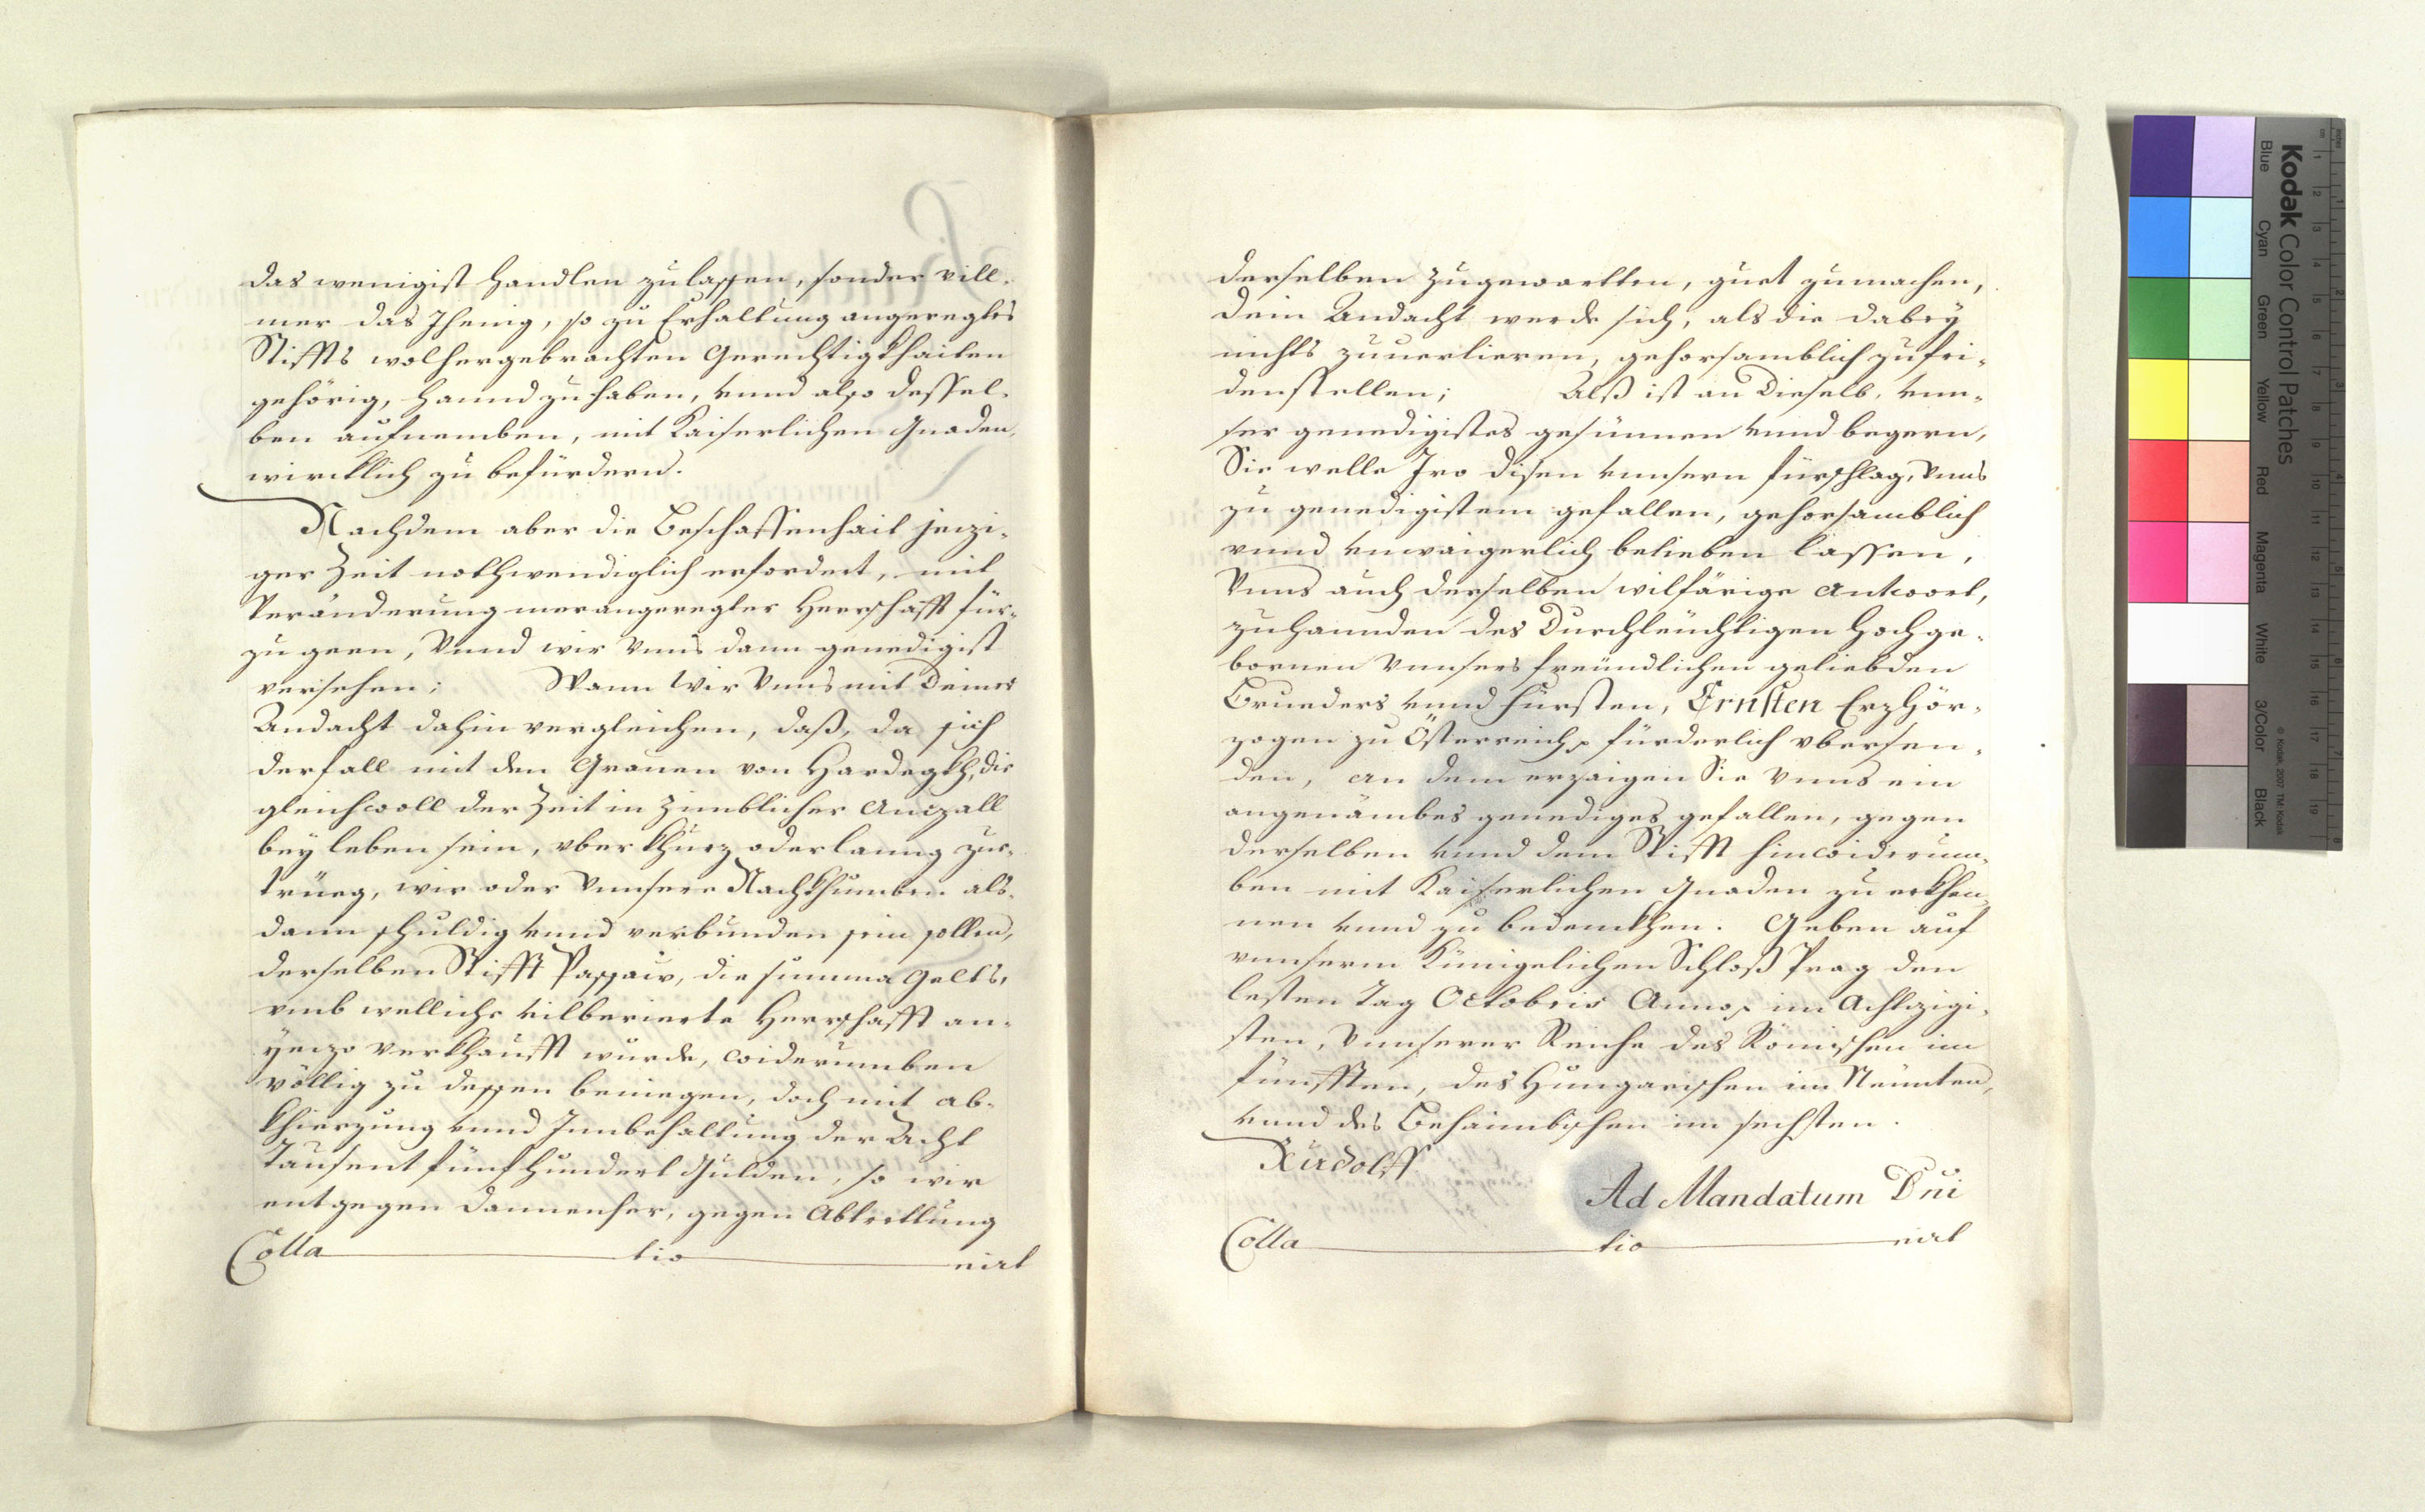 das wenigist handlen zulassen, sonder vill-
mer das Jhenig, so zu Erhaltung angeregtes
Stiffts wolhergebrachten Gerechtigkhaiten
gehörig, hannd zu haben, vnnd also dessel-
ben aufnemben, mit Kaiserlichen Gnaden,
wircklich zu befürdern.
Nachdem aber die Beschaffenhait jezi-
ger Zeit nothwendiglich erfordert, mit
Veränderung merangeregter Herrschafft für-
zugeen, Vnnd wir Vnns dann genedigist
versehen; Wann Wir Vnns mit Deiner
Andacht dahin vergleichen, daß, da sich
derfall mit den Grauen von Hardegkh, die
gleichwoll der Zeit in Zimblicher Anzall
bey leben sein, vber khurz oder lanng zue-
trüeg, wir oder Vnnsere Nachkhumben als-
dann schuldig vnnd verbunden sein sollen,
derselben Stifft Passaw, die summa gelts,
vmb welliche vilberierte Herrschafft an-
yezo verkhaufft wurde, widerumben
völlig zu dessen beniegen, doch mit ab-
khierzung vnnd Innbehaltung der Acht
Tausent fünfhundert Gulden, so wir
entgegen dannenher, gegen Abtrettung
Colla tio nirt
derselben zugewartten, guet zumachen,
Dein Andacht werde sich, als die dabey
nichts zuuerlieren, gehorsamblich zufri-
denstellen; Alß ist an Dieselb, vnn-
ser genedigistes gesünnen vnnd begern,
Sie welle Jro disen vnnsern fürschlag, Vnns
zu genedigistem gefallen, gehorsamblich
vnnd vnwaigerlich belieben lassen,
Vnns auch derselben wilfärige Antwort,
zuhannden des Durchleüchtigen Hochge-
bornen Vnnsers freündlichen geliebden
Brueders vnnd Fürsten, Ernsten ErzHör-
zogen zu Österreich fürderlich vbersen-
den, an dem erzaigen Sie Vnns ein
angenämbes genediges gefallen, gegen
derselben vnnd dem Stifft hinwiderum-
ben mit Kaiserlichen Gnaden zu erkhen-
nen vnnd zu bedenckhen. Geben auf
vnnserm Künigelichen Schloß Prag den
lesten Tag Octobris Anno im Achtzigi-
sten, Vnnserer Reiche des Römischen im
fünfften, des Hungarischen im Neünten,
vnnd des Behaimbischen im sechsten.
Rudolff.
Ad Mandatum Dni
Colla tio nirt
Kodak Color Control Patches
Blue Cyan Green Yellow Red Magenta White 3/Color Black
© Kodak, 2007 TM: Kodak